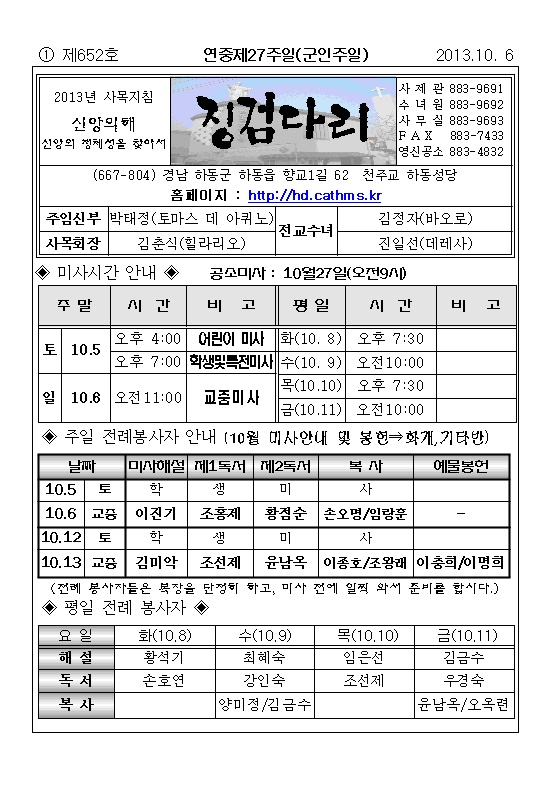 ① 제652호 연중제27주일(군인주일) 2013.10. 6
2013년 사목지침
신앙의해
신앙의 정체성을 찾아서
징검다리
사 제 관 883-9691
수 녀 원 883-9692
사 무 실 883-9693
F A X 883-7433
영신공소 883-4832
(667-804) 경남 하동군 하동읍 향교1길 62 천주교 하동성당
홈페이지 : http://hd.cathms.kr
주임신부 박태정(토마스 데 아퀴노) 전교수녀 김정자(바오로)
사목회장 김춘식(힐라리오) 진일선(데레사)
◈ 미사시간 안내 ◈ 공소미사 : 10월27일(오전9시)
주 말 시 간 비 고 평 일 시 간 비 고
토 10.5 오후 4:00 어린이 미사 화(10. 8) 오후 7:30
오후 7:00 학생및특전미사 수(10. 9) 오전10:00
일 10.6 오전11:00 교중미사 목(10.10) 오후 7:30
금(10.11) 오전10:00
◈ 주일 전례봉사자 안내 (10월 미사안내 및 봉헌⇒화개,기타반)
날짜 미사해설 제1독서 제2독서 복 사 예물봉헌
10.5 토 학 생 미 사
10.6 교중 이진기 조홍제 황점순 손오명/임랑훈 -
10.12 토 학 생 미 사
10.13 교중 김미악 조선제 윤남옥 이종호/조왕래 이충희/이명희
(전례 봉사자들은 복장을 단정히 하고, 미사 전에 일찍 와서 준비를 합시다.)
◈ 평일 전례 봉사자 ◈
요 일 화(10.8) 수(10.9) 목(10.10) 금(10.11)
해 설 황석기 최혜숙 임은선 김금수
독 서 손호연 강인숙 조선제 우경숙
복 사 양미정/김금수 윤남옥/오옥련